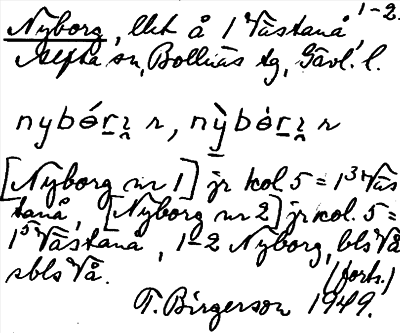 Nyborg, llht å 1 Västanå, 1-2.
Alfta sn, Bollnäs tg, Gävl. l.
[Nyborg nr 1] jr kol. 5 = 1³ Väs
tanå, [Nyborg nr 2] jr kol. 5 =
1⁵ Västanå, 1-2 Nyborg, bls Vå
sbls Vå. (forts.)
T. Birgerson 1949.